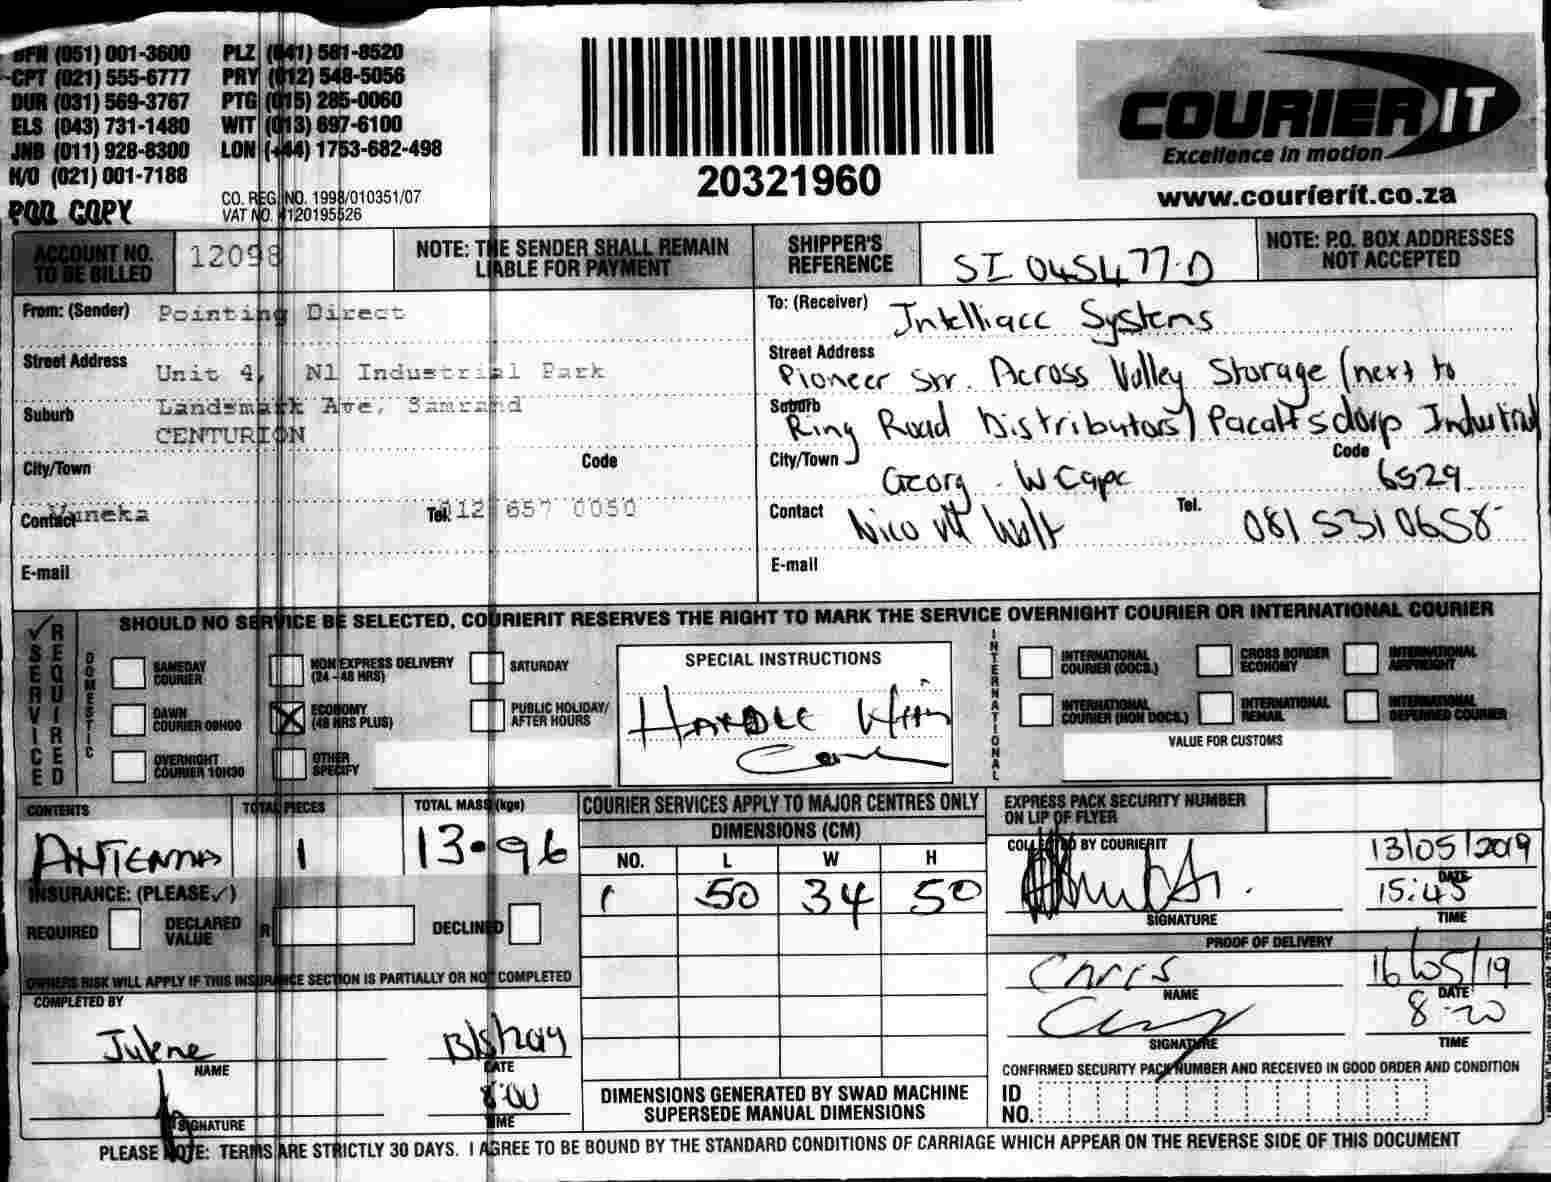 BFN (051) 001-3600 PLZ (041) 581-8520
CPT (021) 555-6777 PRY (012) 548-5056
DUR (031) 569-3767 PTG (015) 285-0060
ELS (043) 731-1480 WIT (013) 697-6100
JNB (011) 928-8300 LON (+44) 1753-682-498
H/O (021) 001-7188
CO. REG. NO. 1998/010351/07
VAT NO. 4120195526
POD COPY
20321960
COURIER IT
Excellence in motion
www.courierit.co.za
ACCOUNT NO. TO BE BILLED 12098
NOTE: THE SENDER SHALL REMAIN LIABLE FOR PAYMENT
SHIPPER'S REFERENCE SI 045477.D
NOTE: P.O. BOX ADDRESSES NOT ACCEPTED
From: (Sender) Pointing Direct
Street Address Unit 4, N1 Industrial Park
Suburb Landsmark Ave, Samrand
CENTURION
City/Town Code
Contact Tel. 012 657 0050
E-mail
To: (Receiver) Intelliacc Systems
Street Address Pioneer Str. Across Valley Storage (next to
Suburb Ring Road Distributors) Pacaltsdorp Industrial
City/Town Georg - W Cape Code 6529
Contact Nico Tel. 081 531 0658
E-mail
SERVICE REQUIRED
SHOULD NO SERVICE BE SELECTED, COURIERIT RESERVES THE RIGHT TO MARK THE SERVICE OVERNIGHT COURIER OR INTERNATIONAL COURIER
DOMESTIC
SAMEDAY COURIER
NON EXPRESS DELIVERY (24 - 48 HRS)
SATURDAY
DAWN COURIER 09H00
ECONOMY (48 HRS PLUS)
PUBLIC HOLIDAY/ AFTER HOURS
OVERNIGHT COURIER 10H30
OTHER SPECIFY
SPECIAL INSTRUCTIONS
HANDLE With
Care
INTERNATIONAL
INTERNATIONAL COURIER (DOCS.)
CROSS BORDER ECONOMY
INTERNATIONAL AIRFREIGHT
INTERNATIONAL COURIER (NON DOCS.)
INTERNATIONAL REMAIL
INTERNATIONAL DEFERRED COURIER
VALUE FOR CUSTOMS
CONTENTS TOTAL PIECES TOTAL MASS (kgs)
ANTENNA 1 13.96
INSURANCE: (PLEASE ✓)
REQUIRED DECLARED VALUE R DECLINED
OWNERS RISK WILL APPLY IF THIS INSURANCE SECTION IS PARTIALLY OR NOT COMPLETED
COMPLETED BY
Julene 13/5/2019
NAME DATE
8:00
SIGNATURE TIME
COURIER SERVICES APPLY TO MAJOR CENTRES ONLY
DIMENSIONS (CM)
NO. L W H
1 50 34 50
DIMENSIONS GENERATED BY SWAD MACHINE
SUPERSEDE MANUAL DIMENSIONS
EXPRESS PACK SECURITY NUMBER ON LIP OF FLYER
COLLECTED BY COURIERIT 13/05/2019
DATE
15:45
SIGNATURE TIME
PROOF OF DELIVERY
Chris 16/05/19
NAME DATE
8:20
SIGNATURE TIME
CONFIRMED SECURITY PACK NUMBER AND RECEIVED IN GOOD ORDER AND CONDITION
ID NO.
PLEASE NOTE: TERMS ARE STRICTLY 30 DAYS. I AGREE TO BE BOUND BY THE STANDARD CONDITIONS OF CARRIAGE WHICH APPEAR ON THE REVERSE SIDE OF THIS DOCUMENT